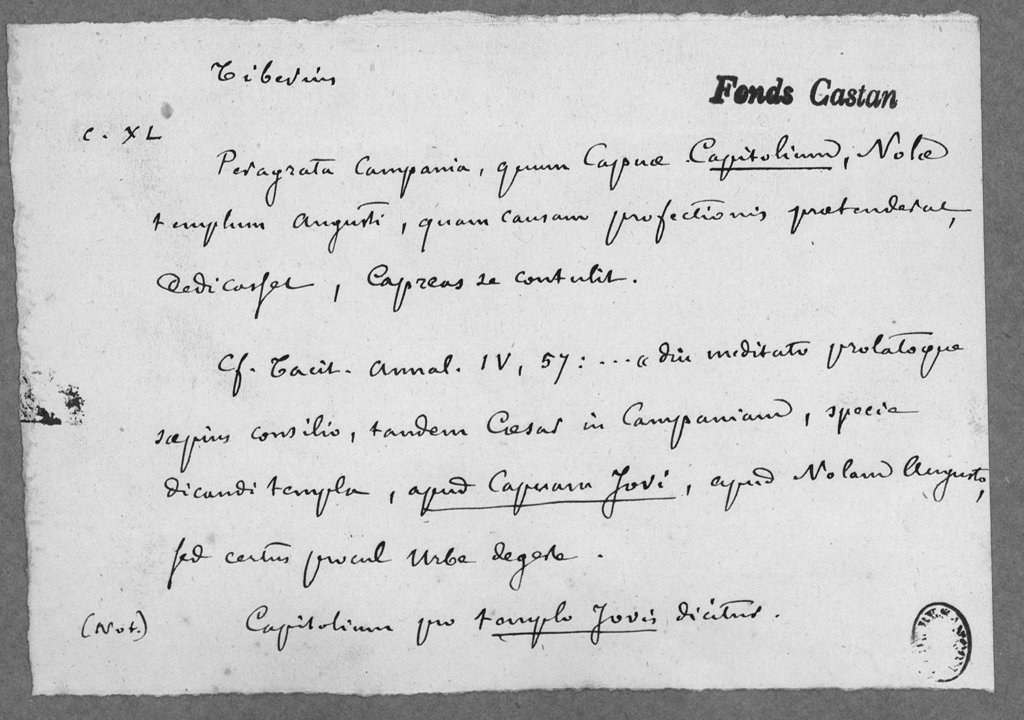 Tiberius
Fonds Castan
C. XL
Peragrata Campania, quum Capuæ Capitolium, Nolæ
templum Augusti, quam causam profectionis prætenderat,
Dedicasset, Capreas se contulit.
Cf. Tacit. Annal. IV, 57: ... « diu meditato prolatoque
sæpius consilio, tandem Cæsar in Campaniam, specie
dicandi templa, apud Capuam Jovi, apud Nolam Augusto,
sed certus procul Urbe degere.
(Not.) Capitolium pro templo Jovis dicitur.